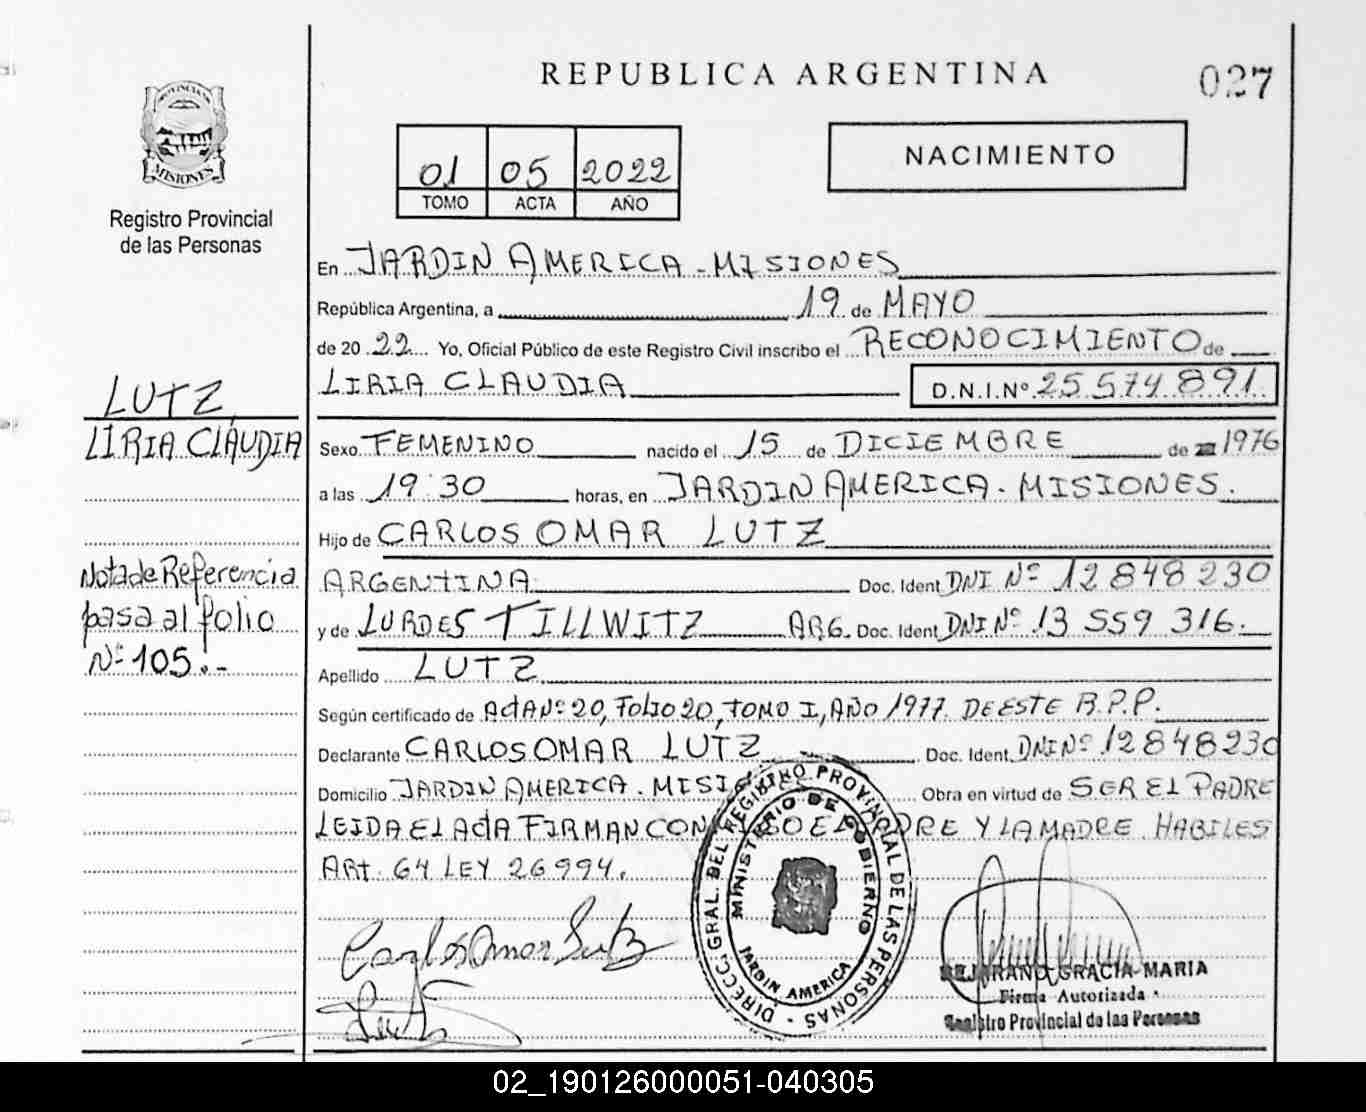 REPUBLICA ARGENTINA
027
PROVINCIA
MISIONES
Registro Provincial
de las Personas
01 05 2022
TOMO ACTA AÑO
NACIMIENTO
LUTZ
LIRIA CLAUDIA
Nota de Referencia
pasa al folio
Nº 105.-
En JARDIN AMERICA - MISIONES
República Argentina, a 19 de MAYO
de 20 22 Yo, Oficial Público de este Registro Civil inscribo el RECONOCIMIENTO de
LIRIA CLAUDIA D.N.I. Nº 25.574.891
Sexo FEMENINO nacido el 15 de DICIEMBRE de 1976
a las 19:30 horas, en JARDIN AMERICA - MISIONES.
Hijo de CARLOS OMAR LUTZ
ARGENTINA Doc. Ident. DNI Nº 12 848 230
y de LURDES TILLWITZ ARG. Doc. Ident. DNI Nº 13 559 316.
Apellido LUTZ
Según certificado de ActA Nº 20, Folio 20, TOMO I, AÑO 1977. DE ESTE R.P.P.
Declarante CARLOS OMAR LUTZ Doc. Ident. DNI Nº 12848230
Domicilio JARDIN AMERICA. MISI Obra en virtud de SER EL PADRE
LEIDA EL ActA FIRMAN CON EL PADRE Y LA MADRE HABILES
ARt. 64 LEY 26994.
Carlos Omar Lutz
DIRECC. GRAL. DEL REGISTRO PROVINCIAL DE LAS PERSONAS -
MINISTERIO DE GOBIERNO
JARDIN AMERICA
BEJARANO GRACIA MARIA
Firma Autorizada
Registro Provincial de las Personas
02_190126000051-040305